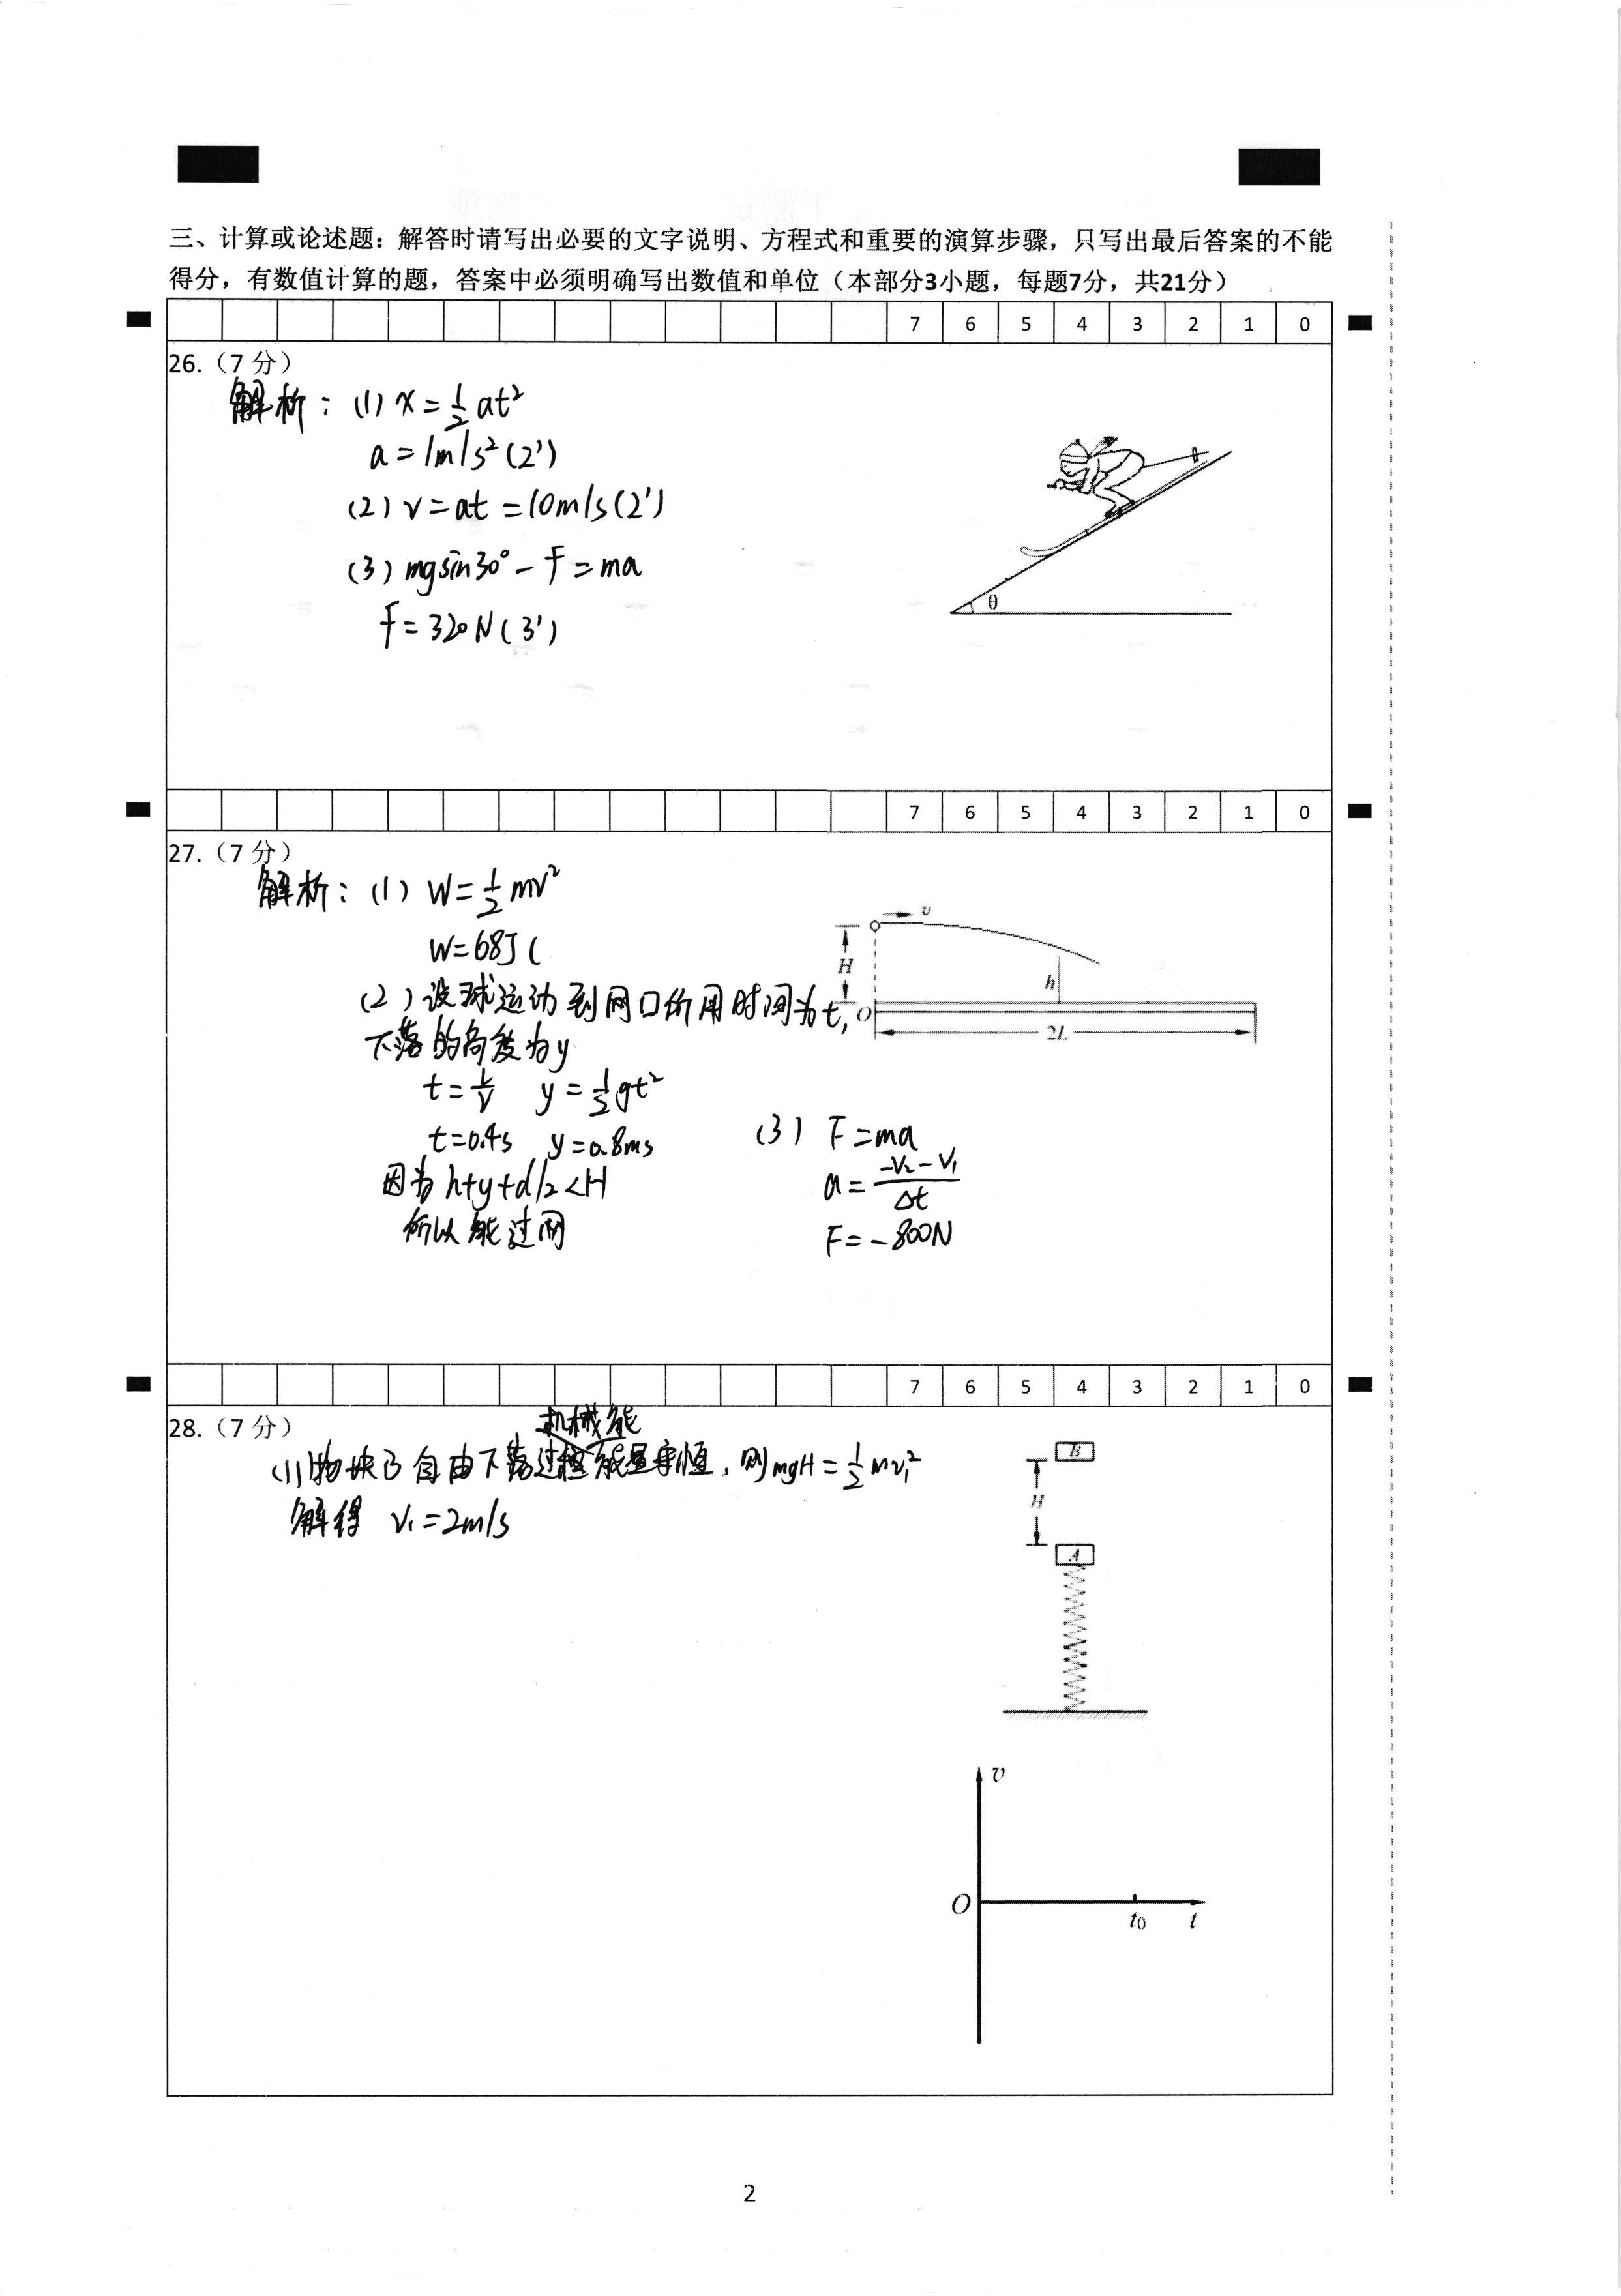 三、计算或论述题：解答时请写出必要的文字说明、方程式和重要的演算步骤，只写出最后答案的不能
得分，有数值计算的题，答案中必须明确写出数值和单位（本部分3小题，每题7分，共21分）
7 6 5 4 3 2 1 0
26.（7 分）
解析：(1) x=½at²
a=1m/s²(2')
(2) v=at=10m/s(2')
(3) mgsin30°-f=ma
f=320N(3')
θ
7 6 5 4 3 2 1 0
27.（7 分）
解析：(1) W=½mv²
W=68J(
(2) 设球运动到网口所用时间为t,
下落的高度为y
t=L/v y=½gt²
t=0.4s y=0.8ms
因为h+y+d/2<H
所以能过网
(3) F=ma
a=(-v₂-v₁)/Δt
F=-800N
v
H
h
O
2L
7 6 5 4 3 2 1 0
28.（7 分）
机械能
(1)物块B自由下落过程能量守恒，则mgH=½mv₁²
解得 v₁=2m/s
B
H
A
v
O
t₀ t
2